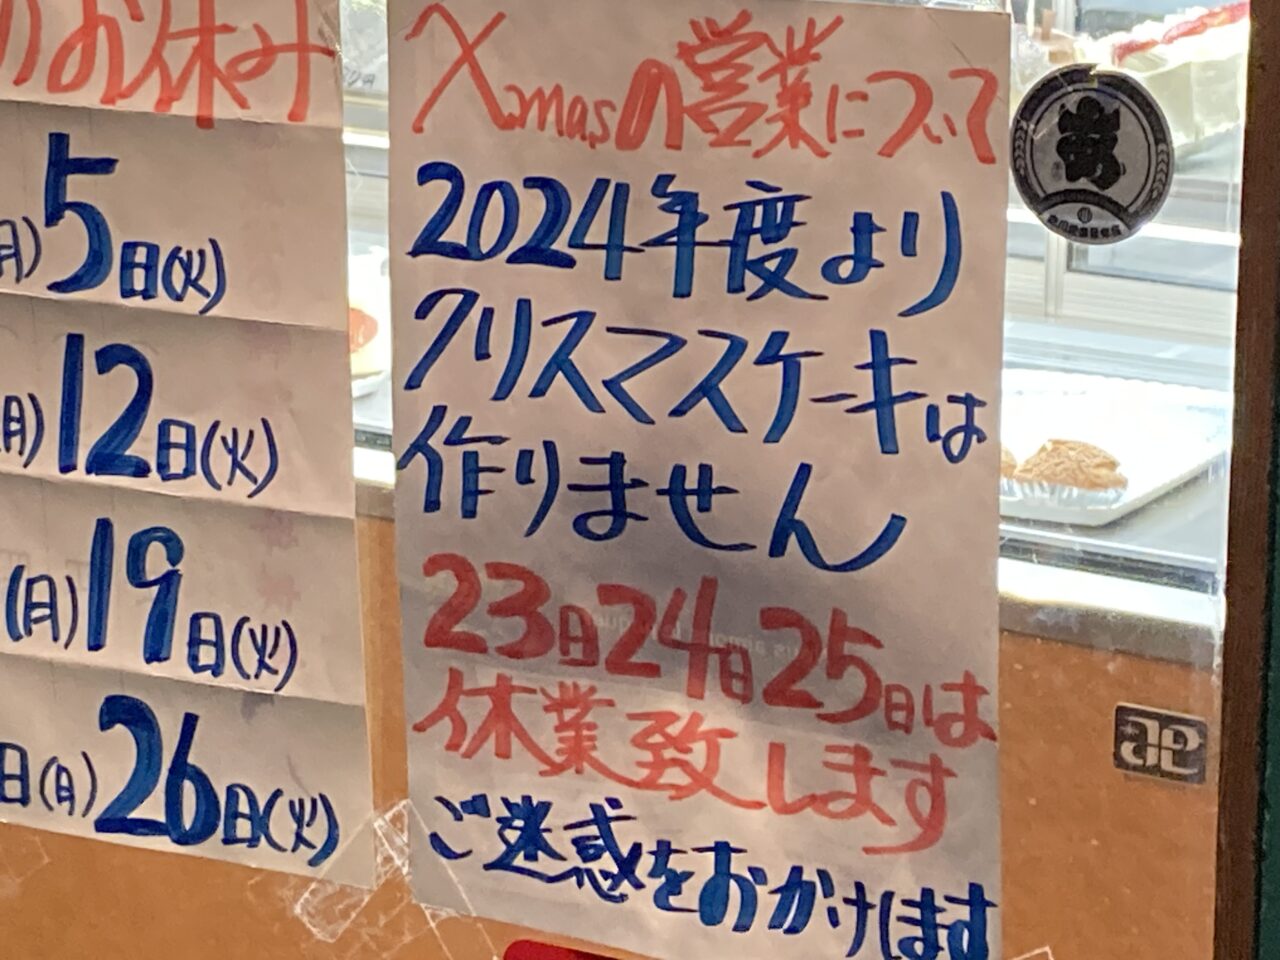 のお休み
月) 5日(火)
月) 12日(火)
(月) 19日(火)
日(月) 26日(火)
Xmasの営業について
2024年度より
クリスマスケーキは
作りません
23日24日25日は
休業致します
ご迷惑をおかけします